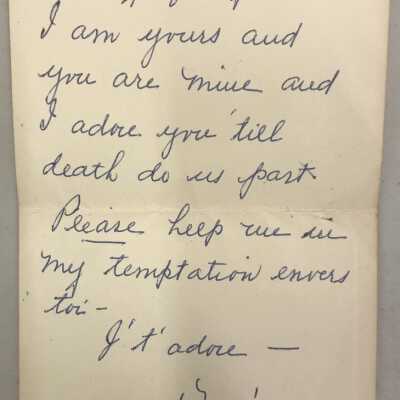 I am yours and
you are mine and
I adore you 'till
death do us part
Please help me in
my temptation envers
toi-
J't'adore —